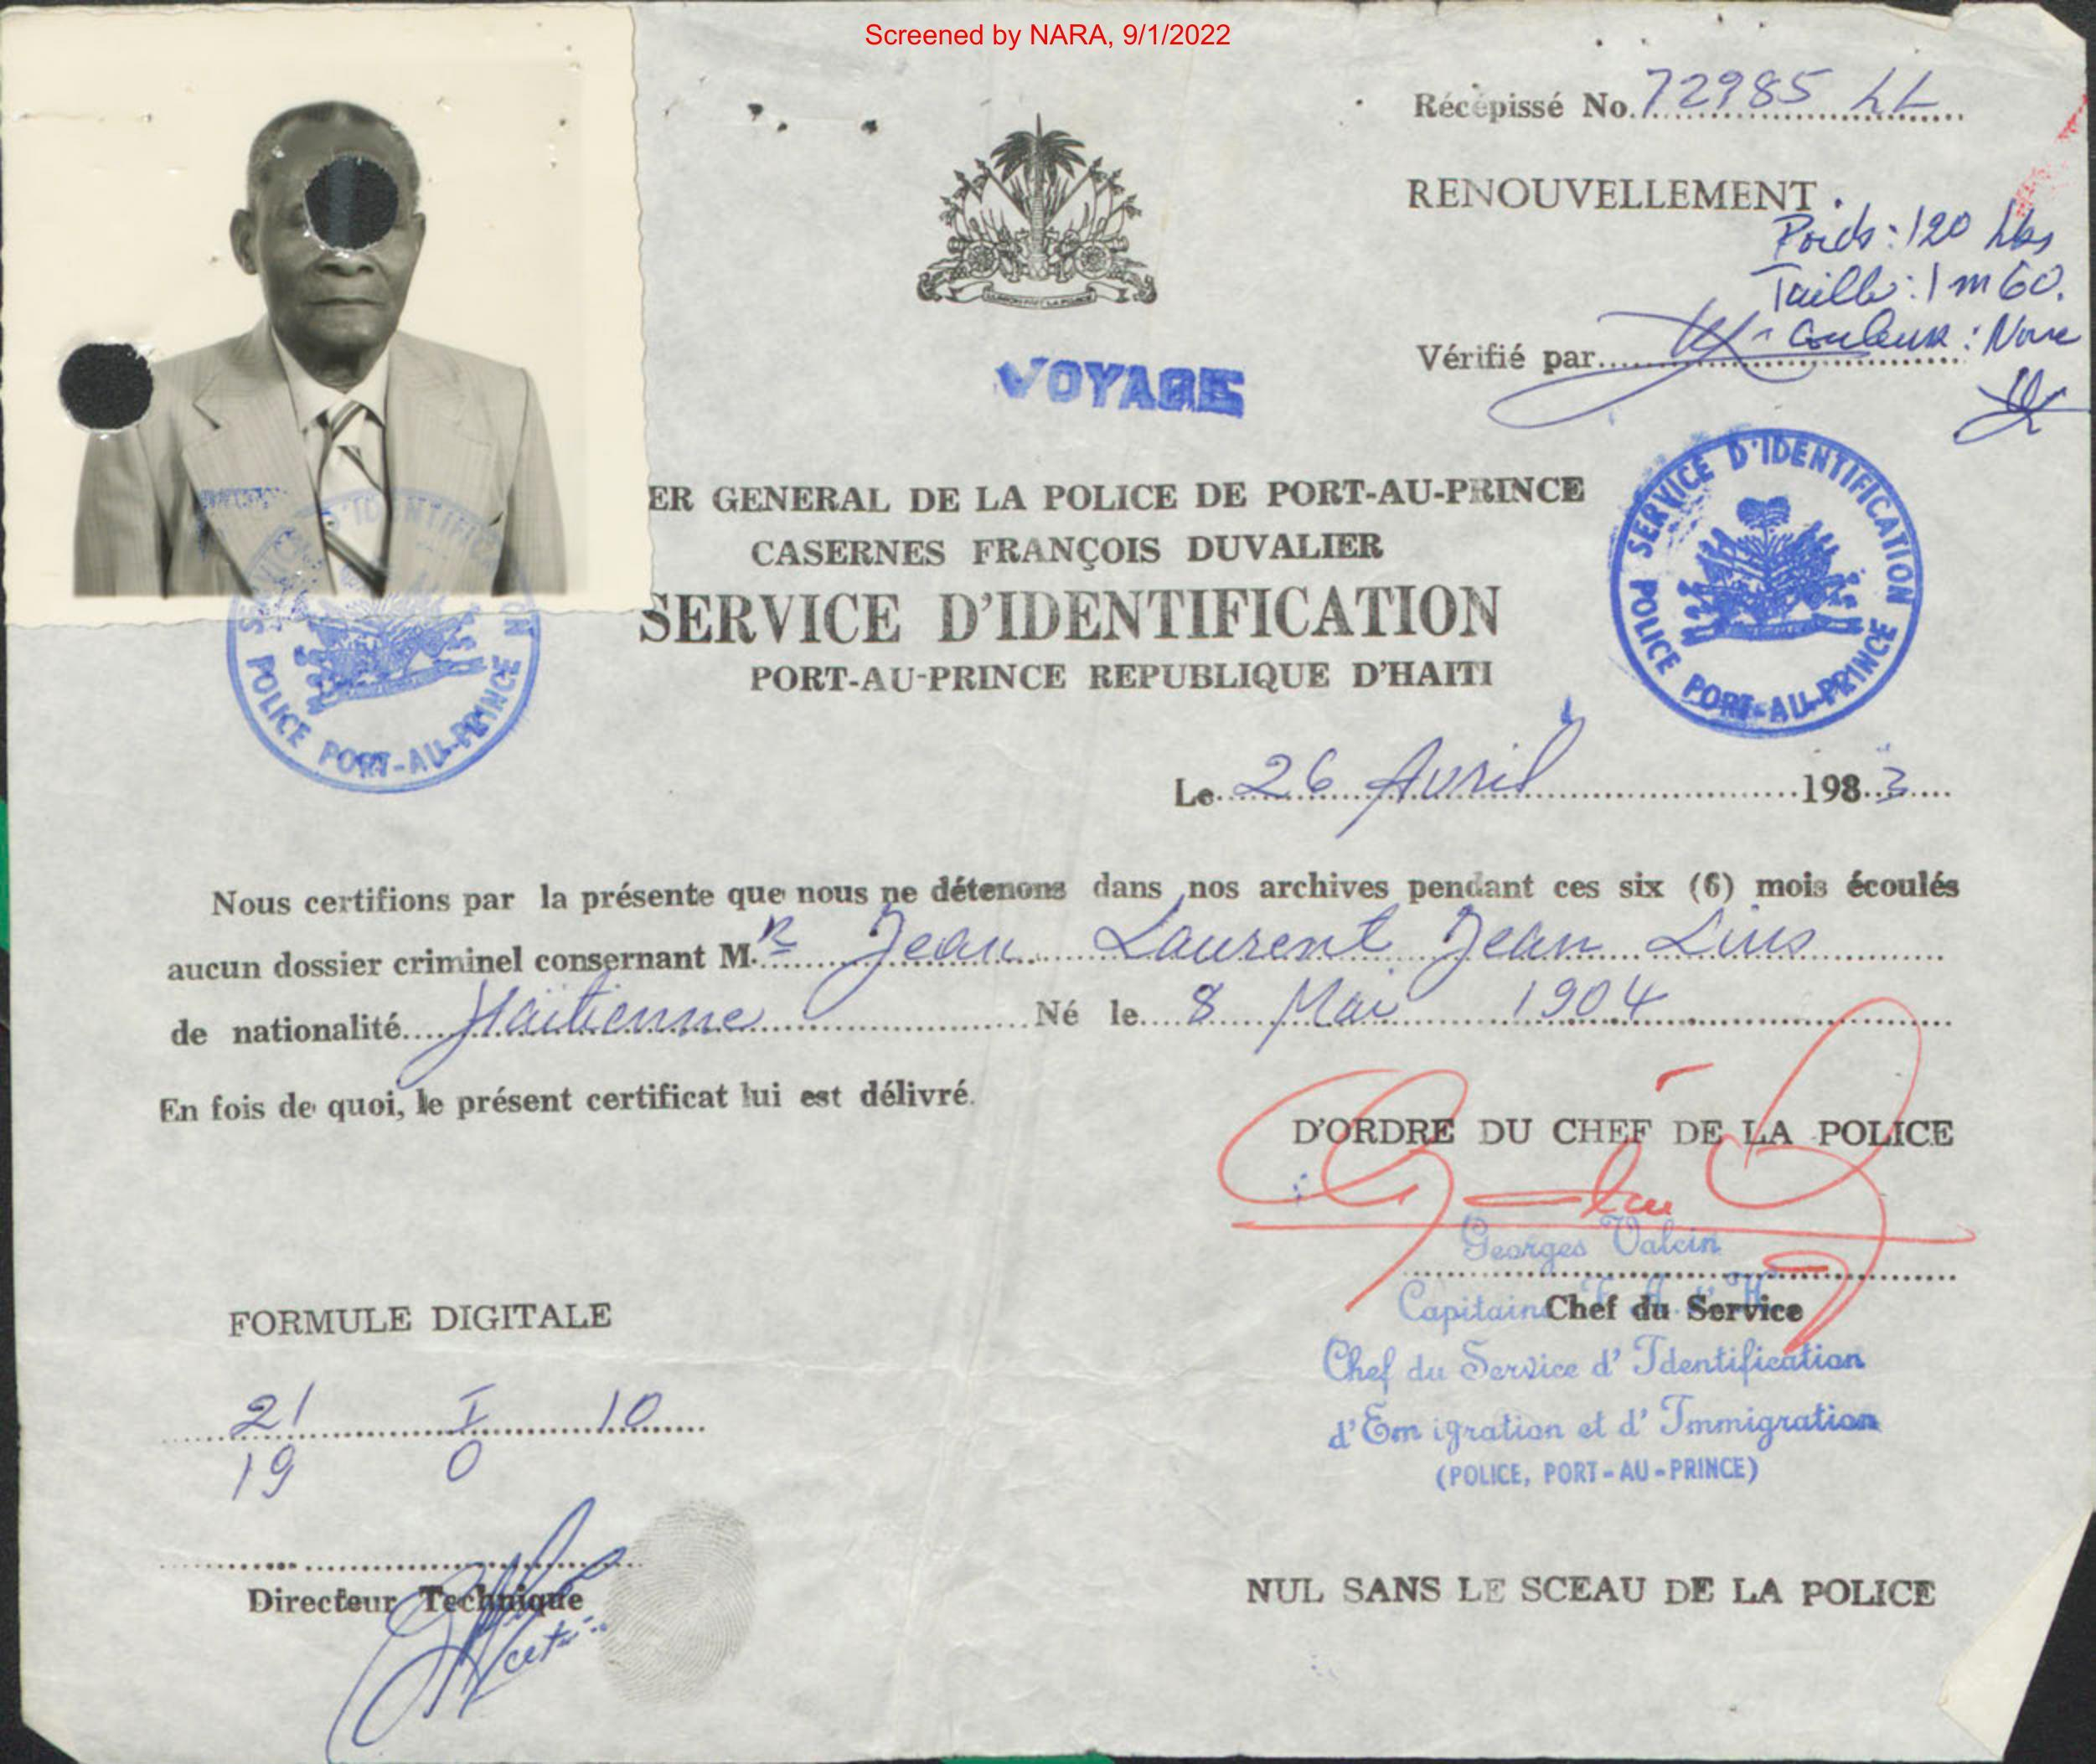 Screened by NARA, 9/1/2022
Récépissé No. 72985 LL
RENOUVELLEMENT
Poids : 120 Lbs
Taille : 1 m 60.
Couleur : Noire
Vérifié par
VOYAGE
ER GENERAL DE LA POLICE DE PORT-AU-PRINCE
CASERNES FRANÇOIS DUVALIER
SERVICE D'IDENTIFICATION
PORT-AU-PRINCE REPUBLIQUE D'HAITI
SERVICE D'IDENTIFICATION
POLICE PORT-AU-PRINCE
SERVICE D'IDENTIFICATION
POLICE PORT-AU-PRINCE
Le 26 Avril 1983
Nous certifions par la présente que nous ne détenons dans nos archives pendant ces six (6) mois écoulés
aucun dossier criminel consernant M.R Jean Laurent Jean Luis
de nationalité Haïtienne Né le 8 Mai 1904
En fois de quoi, le présent certificat lui est délivré.
D'ORDRE DU CHEF DE LA POLICE
Georges Valcin
Capitaine F. A. d'H.
Chef du Service
Chef du Service d'Identification
d'Emigration et d'Immigration
(POLICE, PORT-AU-PRINCE)
FORMULE DIGITALE
21 I 10
19 0
Directeur Technique
NUL SANS LE SCEAU DE LA POLICE